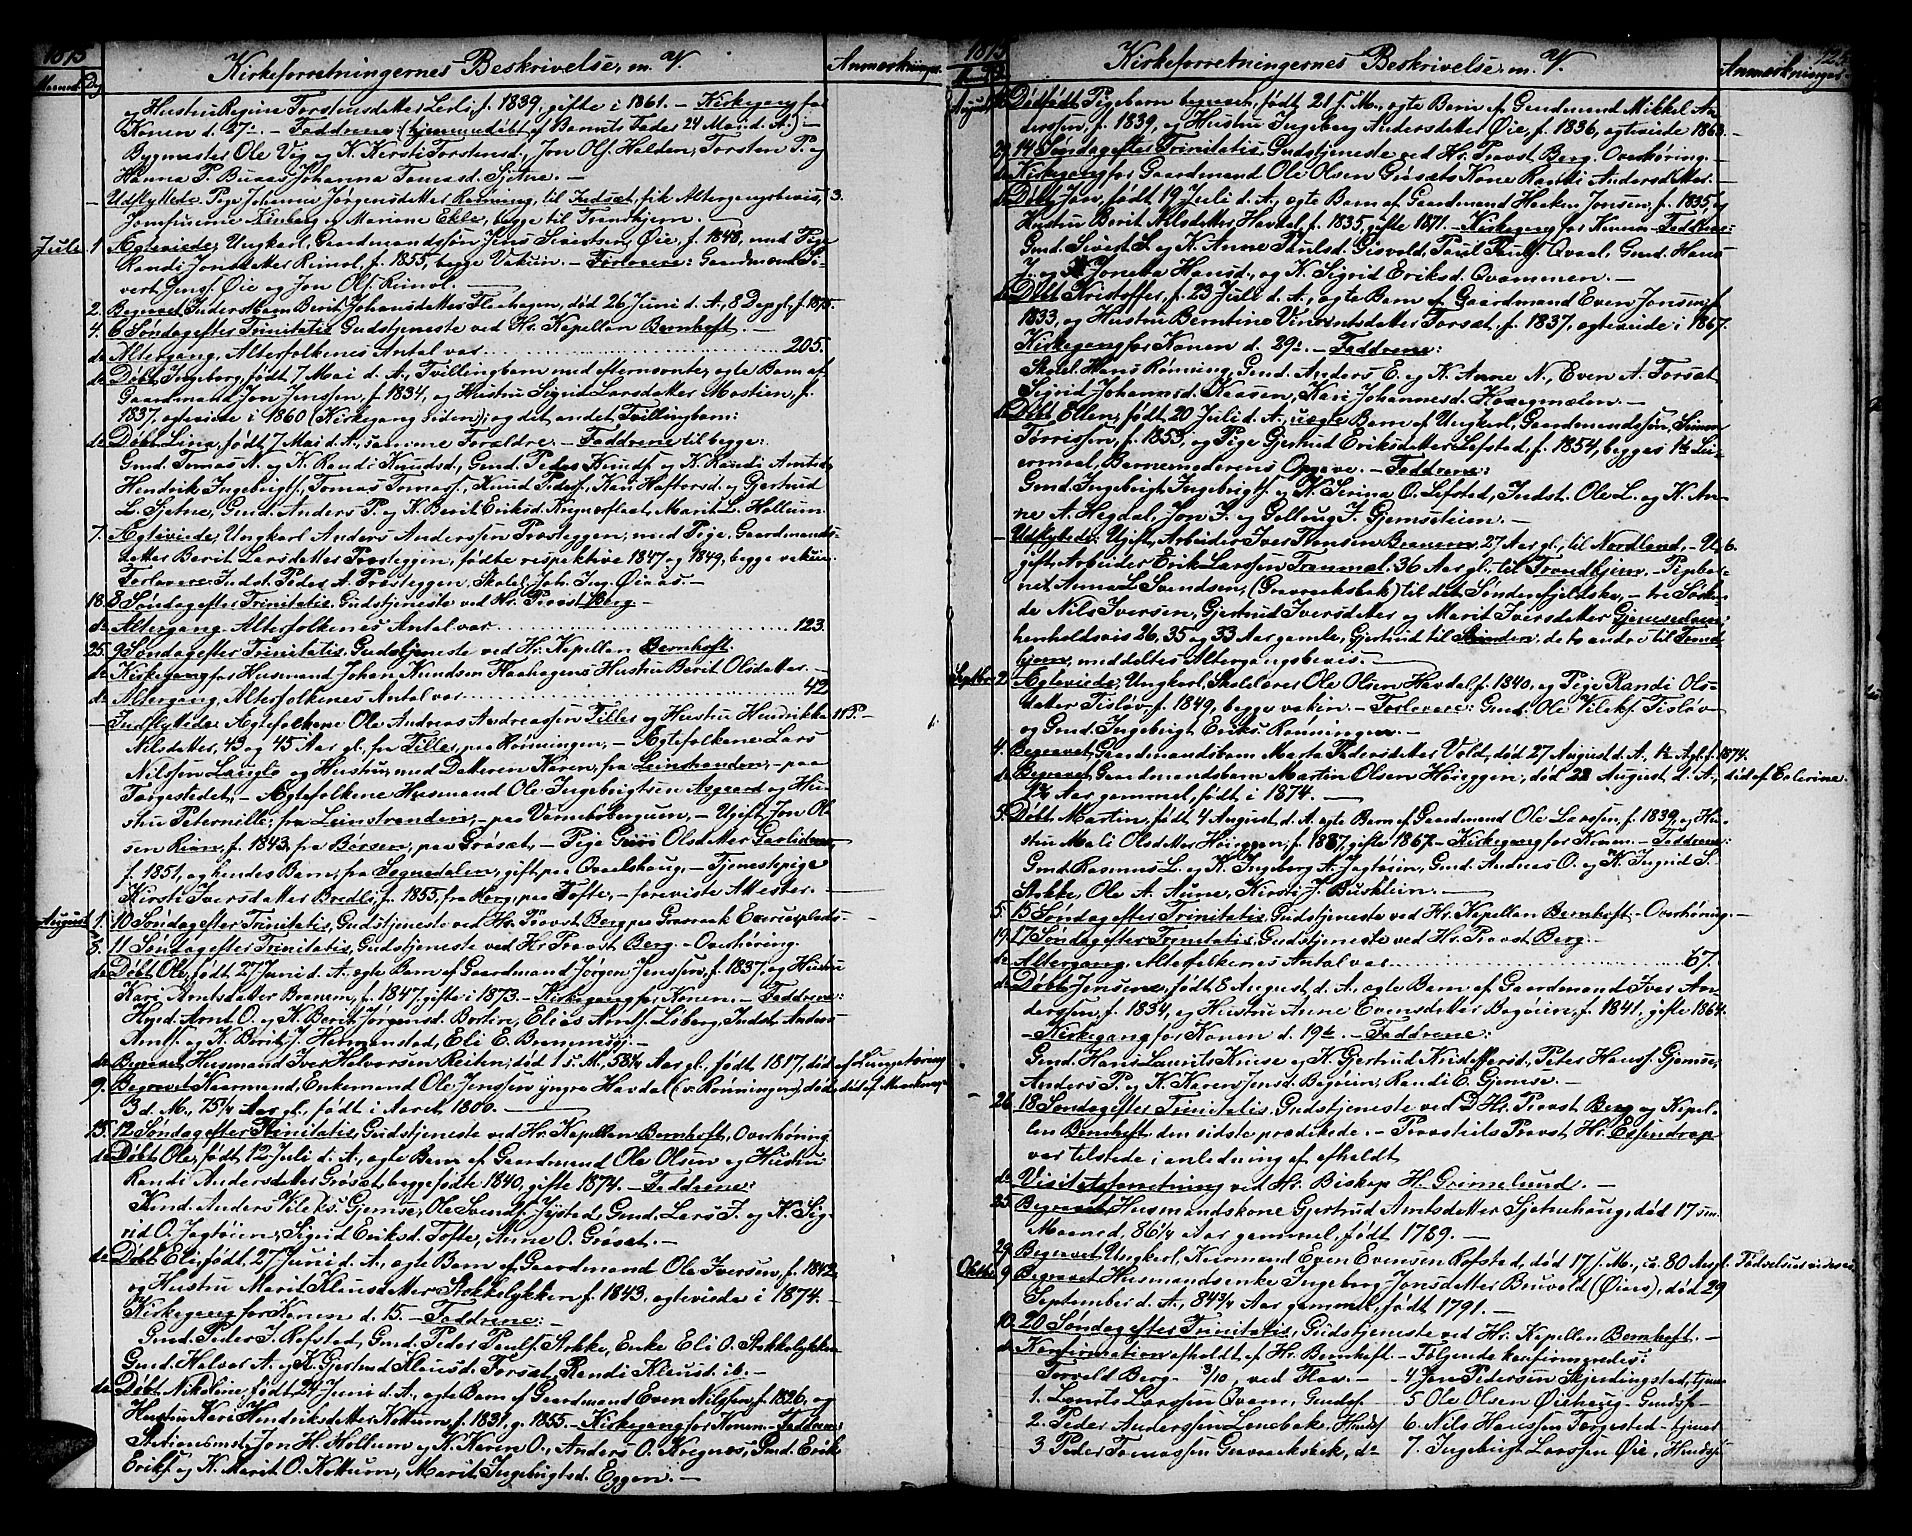 1875
Kirkeforretningernes Beskrivelse, m. V.
Anmerkninger.
Maaned. Dag
og Hustru Regine Torstensdatter Lerli, f. 1839, gifte i 1861. – Kirkegang for
Konen d. 27de. – Faddrene: (hjemmedøbt af Barnets Fader 24 Mai d. A.): –
Bygmester Ole Vig og K. Kirsti Torstensd., Jon Ols. Halden, Torsten P. og
Hanna P. Buaas, Johanna Tomasd. Sjetne. –
– Udflyttede: Pige Johanna Jørgensdatter Rønning, til Indsæt, fik Altergangsbevis, 3.
Jomfruerne Kinberg og Mariane Ekle, begge til Trondhjem. –
Juli 1. Ægteviede: Ungkarl, Gaardmandssøn Jens Sivertsen Øie, f. 1848, med Pige
Randi Jonsdatter Rimol, f. 1855, begge Vakcin. – Forlovere: Gaardmænd Si-
vert Jens. Øie og Jon Ols. Rimol. –
2. Begravet Inderst Barn Berit Johansdatter Flaahagen, død 26 Juni d. A., 8 Dage gl., f. 1875.
4. 6 Søndag efter Trinitatis. Gudstjeneste ved Hr. Kapellan Bernhoft. –
do Altergang. Alterfolkenes Antal var ... 205.
do Døbt Ingeborg, født 7 Mai d. A., Tvillingbarn med efternævnte, ægte Barn af
Gaardmand Jon Jenssen, f. 1834, og Hustru Sigrid Larsdatter Mostien, f.
1837, ægteviede i 1860 (Kirkegang siden); og det andet Tvillingbarn:
do Døbt Lina, født 7 Mai d. A., samme Forældre. – Faddrene til begge:
Gmd. Tomas A. og K. Randi Knudsd., Gmd. Peder Knuds. og K. Randi Arntsd.,
Hendrik Ingebrigts., Tomas Tomass., Knud Peders., Kari Haftorsd. og Gjertrud
L. Sjetne, Gmd. Anders P. og K. Berit Eriksd. Krignesflaat, Marit L. Hollum.
7. Ægteviede, Ungkarl Anders Anderssen Præsteggen, med Pige, Gaardmands-
datter Berit Larsdatter Præsteggen, fødte respektive 1847 og 1849, begge vakcin.
Forlovere: Indst. Peder A. Præsteggen, Skolel. Joh. Ing. Øiaas. –
18. 8 Søndag efter Trinitatis. Gudstjeneste ved Hr. Provst Berg –
do Altergang. Alterfolkenes Antal var ... 123.
25. 9 Søndag efter Trinitatis. Gudstjeneste ved Hr. Kapellan Bernhoft.
do Kirkegang for Husmand Johan Knudsen Flaahagens Hustru Berit Olsdatter. –
do Altergang. Alterfolkenes Antal var ... 42
– Indflyttede: Ægtefolkene Ole Andreas Andreassen Tiller og Hustru Hendrikke
Nilsdatter, 43 og 45 Aar gl., fra Tiller, paa Rønningen, – Ægtefolkene Lars
Nilssen Langlo og Hustru, med Datteren Karen, fra Leinstranden, – paa
Forgestedet, – Ægtefolkene Husmand Ole Ingebrigtsen Asgaard og Hu-
stru Peternille, fra Leinstranden, – paa Værnebobergum, – Ugift Jon Ol-
sen Rian, f. 1843, fra Børsen, paa Grøsæt, – Pige Guri Olsdatter Garliden,
f. 1851, og hendes Barn, fra Soknedalen, gift, paa Qvaelshaug, – Tjenestepige
Kirsti Iversdatter Bredli, f. 1855, fra Horg, paa Tofte, – foreviste Attester. –
August 1. 10 Søndag efter Trinitatis, Gudstjeneste ved Hr. Provst Berg paa Graværk Exercisplads. –
8. 11 Søndag efter Trinitatis. Gudstjeneste ved Hr. Provst Berg. – Overhøring.
do Døbt Ole, født 27 Juni d. A., ægte Barn af Gaardmand Jørgen Jenssen, f. 1837, og Hustru
Kari Arntsdatter Brænem, f. 1847, gifte i 1873. – Kirkegang for Konen. – Faddrene:
Hmd. Arnt O. og K. Berit Jørgensd. Bortin, Elias Arnts. Loberg, Indst. Anders
Arnts. og K. Berit J. Hermanstad, Eli E. Brønmyr. –
do Begravet Husmand Iver Halvorsen Reiten, død 1 s. M., 58 1/4 Aar gl., født 1817, død af
9. Begravet Kaarmand, Enkemand Ole Jenssen yngre Havdal (v. Rønningen), død
3 d. M., 75 1/4 Aar gl., født i Aaret 1800. –
15. 12 Søndag efter Trinitatis, Gudstjeneste ved Hr. Kapellan Bernhoft, Overhøring.
do Døbt Ole, født 12 Juli d. A., ægte Barn af Gaardmand Ole Olsen og Hustru
Randi Andersdatter Grøsæt, begge fødte 1840, gifte 1874. – Faddrene:
Gmd. Anders Vileks. Gjemse, Ole Svends. Jysted, Gmd. Lars J. og K. Sig-
rid O. Jagtøien, Sigrid Eriksd. Tofte, Anne O. Grøsæt. –
do Døbt Eli, født 27 Juni d. A., ægte Barn af Gaardmand Ole Iversen, f. 1842,
og Hustru Marit Klausdatter Stokkelykken, f. 1843, ægteviede i 1874. –
Kirkegang for Konen d. 15. – Faddrene: –
Gmd. Peder J. Rofstad, Gmd. Peder Pauls. Stokke, Enke Eli O. Stokkelykken
Gmd. Halvar A. og K. Gjertrud Klausd. Forsæt, Randi Klausd. ib. –
do Døbt Nikoline, født 24 Juni d. A., ægte Barn af Gaardmand Even Nilssen, f. 1826, og
Hustru Kari Hendriksdatter Kottum, f. 1831, g. 1855. – Kirkegang for Konen. – Faddrene:
Stationsmst. Jon H. Hollum og K. Karen O., Anders O. Krignes, Gmd. Erik
Eriks. og K. Marit O. Kottum, Marit Ingebrigtsd. Eggen. –
1875
Kirkeforretningernes Beskrivelse, m. V.
Anmerkninger.
125.
August
Dødfødt Pigebarn begravet, født 21 s. M., ægte Barn af Gaardmand Mikkel An-
derssen, f. 1839, og Hustru Ingeborg Andersdatter Øie, f. 1836, ægteviede 1863. –
29. 14 Søndag efter Trinitatis. Gudstjeneste ved Hr. Provst Berg. Overhøring. –
do Kirkegang for Gaardmand Ole Olsen Grøsæts Kone Randi Andersdatter. –
do Døbt Jon, født 19 Juli d. A., ægte Barn af Gaardmand Haaken Jonsen, f. 1835, og
Hustru Berit Nilsdatter Havdal, f. 1835, gifte 1871. – Kirkegang for Konen. – Faddrene:
Gmd. Sivert L. og K. Anne Paulsd. Gisvold, Paul Pauls. Qvaal, Gmd. Hans
J. og K. Joneta Hansd., og K. Sigrid Eriksd. Qvammen. –
do Døbt Kristoffer, f. 23 Juli d. A., ægte Barn af Gaardmand Even Jonsen, f.
1833, og Hustru Berntine Vincentsdatter Forsæt, f. 1837, ægteviede i 1867.
Kirkegang for Konen d. 29de. – Faddrene:
Skolel. Hans Rønning, Gmd. Anders E. og K. Anne N., Even A. Forsæt
Sigrid Johannesd. Kaasen, Kari Johannesd. Hovegmælen. –
do Døbt Ellen, født 20 Juli d. A., uægte Barn af Ungkarl, Gaardmandssøn, Simon
Torrissen, f. 1853, og Pige Gjertrud Eriksdatter Løfsted, f. 1854, begges 1ste Lei-
ermaal, Barnemoderens Opgave. – Faddrene:
Gmd. Ingebrigt Ingebrigts. og K. Serina O. Løfsted, Indst. Ole L. og K. An-
ne A. Hegdal, Jon J. og Gollaug J. Gjemsesteien. –
– Udflyttede: Ugift, Arbeider Iver Hansen Brænem, 27 Aar gl., til Nordland, – U- 6.
gift, Arbeider Erik Larssen Trømmel, 36 Aar gl., til Trondhjem. – Pigebar-
net Anna L. Svendsen, (Gravraaksbak) til det Søndenfjeldske, – tre Søsken-
de Nils Iversen, Gjertrud Iversdatter og Marit Iversdatter Gjemsedum,
henholdsvis 26, 35 og 33 Aar gamle, Gjertrud til Strinden, de to andre til Trond-
hjem, meddeltes Altergangsbevis. –
Septbr. 2. Ægteviede, Ungkarl, Skolelærer Ole Olsen Havdal, f. 1840, og Pige Randi Ols-
datter Tisløv, f. 1849, begge vakcin. – Forlovere: Gmd. Ole Vileks. Tisløv
og Gmd. Ingebrigt Eriks. Rønningen. –
4. Begravet, Gaardmandsbarn Marta Pedersdatter Vold, død 27 August d. A., 1 1/2 A. gl., f. 1874.
do Begravet Gaardmandsbarn Martin Olsen Høieggen, død 28 August, d. A., død af Colerine.
1 1/2 Aar gammel, født i 1874. –
5. Døbt Martin, født 4 August, d. A. ægte Barn af Gaardmand Ole Larssen, f. 1839, og Hu-
stru Mali Olsdatter Høieggen, f. 1837, gifte 1867. – Kirkegang for Konen. – Faddrene:
Gmd. Rasmus L. og K. Ingeborg A. Jagtøien, Gmd. Andreas O. og K. Ingrid S.
Stokke, Ole A. Aune, Kirsti J. Busklein. –
5. 15 Søndag efter Trinitatis. Gudstjeneste ved Hr. Kapellan Bernhoft. – Overhøring. –
19. 17 Søndag efter Trinitatis. Gudstjeneste ved Hr. Provst Berg. –
do Altergang, Alterfolkenes Antal var ... 67.
do Døbt Jensine, født 8 August, d. A., ægte Barn af Gaardmand Iver An-
derssen, f. 1834, og Hustru Anne Evensdatter Bagøien, f. 1841, gifte 1864.
– Kirkegang for Konen d. 19de. – Faddrene:
Gmd. Hans Laurits Kvise og K. Gjertrud Kristoffersd., Peter Hanss. Gjemse,
Anders P. og K. Karen Jensd. Bagøien, Randi E. Gjemse. –
26. 18 Søndag efter Trinitatis, Gudstjeneste ved DHr. Provst Berg og Kapel-
len Bernhoft, den sidste prædikede. – Provstiets Provst Hr. Essendrop
var tilstede i anledning af afholdt
do Visitatsforretning ved Hr. Biskop H. Grimelund. –
25. Begravet Husmandskone Gjertrud Arntsdatter Sjetnehaug, død 17 sm.
Maaned, 86 1/4 Aar gammel, født 1789. –
29. Begravet Ungkarl, Kaarmand Even Evensen Rofstad, død 17 s. M., ca. 80 Aar gl.
Oktbr. 9. Begravet Husmandsenke Ingeborg Jonsdatter Bruvold (Øiens), død 29
September d. A., 84 3/4 Aar gammel, født 1791. –
10. 20 Søndag efter Trinitatis, Gudstjeneste ved Hr. Kapellan Bernhoft. –
do Konfirmation afholdt af Hr. Bernhoft. – Følgende konfirmeredes:
Torvald Berg – 3/10, ved Flaa. –
1. Laurits Larssen Qvam, Gmdss.
2. Peder Anderssen Lønebak, Hmdss.
3. Peder Tomassen Gravraaksbak, do
4 Jon Pedersen Skjerdingstad, tjener
5 Ole Olsen Øieberg – Gmdss. –
6. Nils Hanssen Forgested – tjener
7. Ingebrigt Larssen Øie, Hmdss.